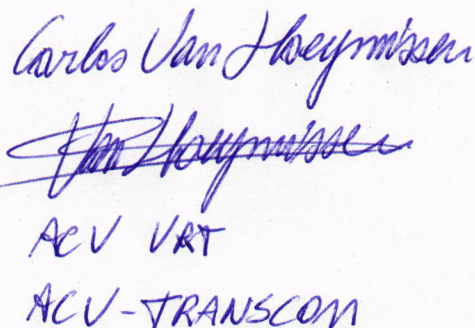 Carlos Van Hoeymissen
Van Hoeymissen
ACV VRT
ACV-TRANSCOM